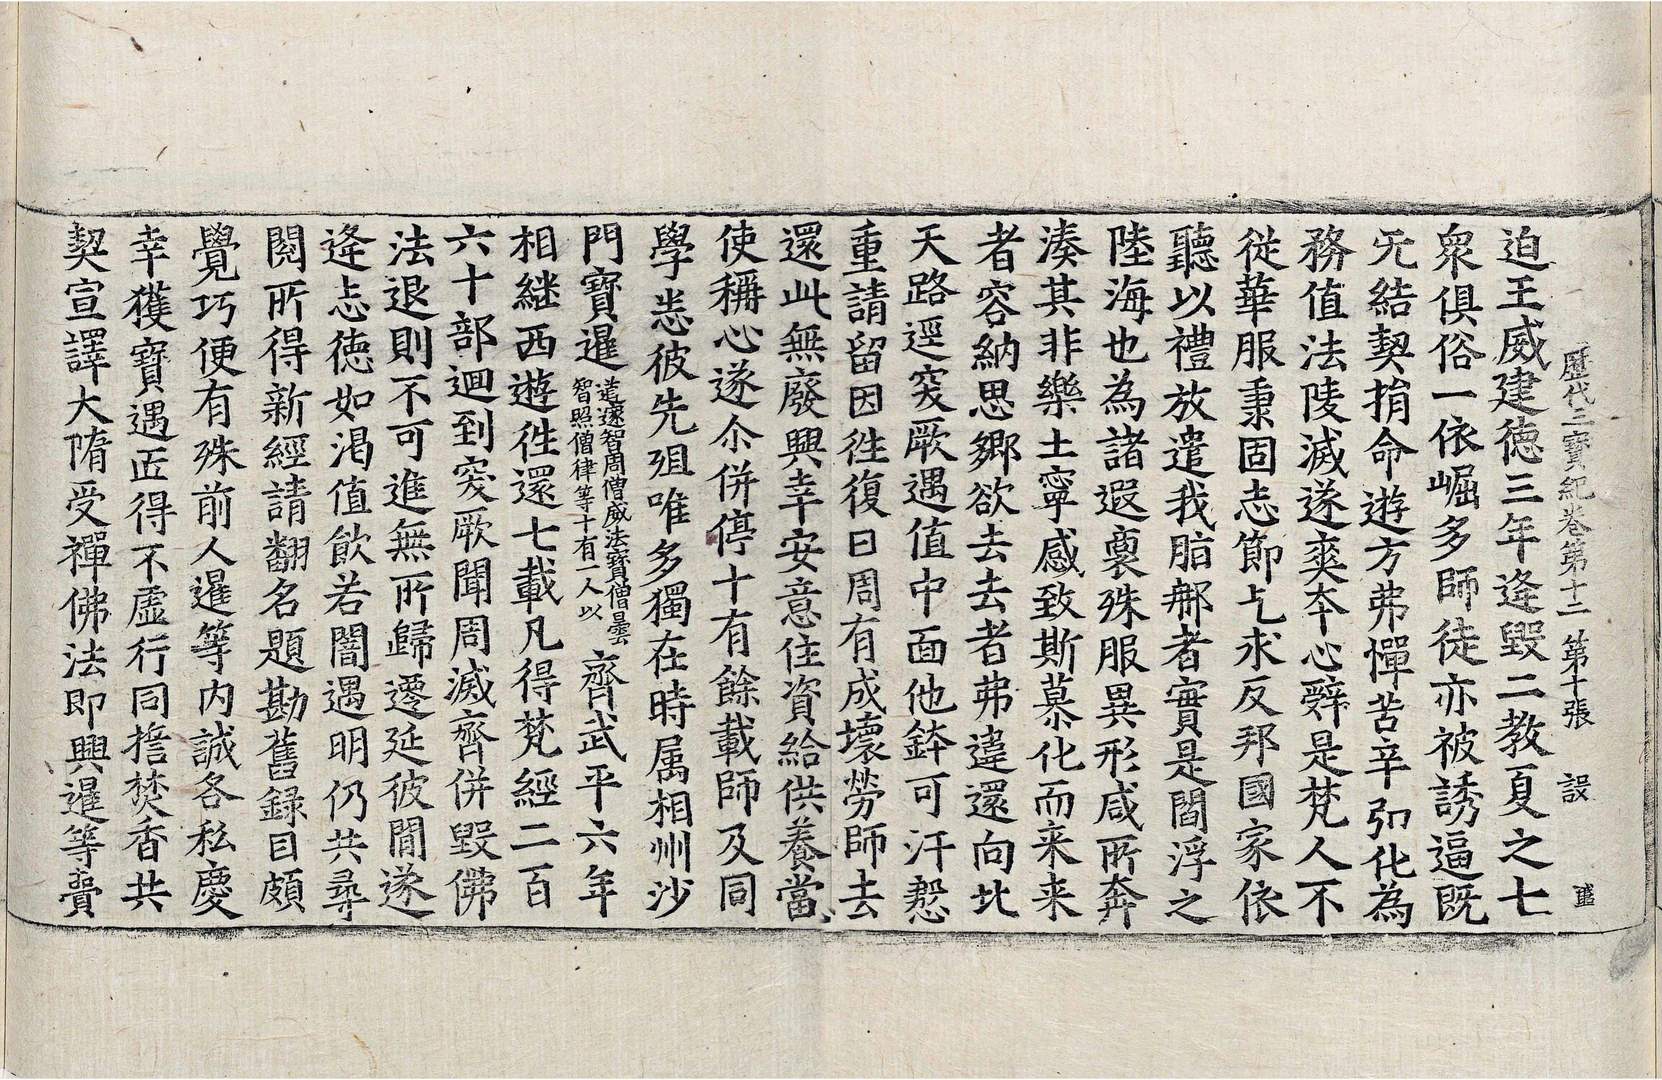 歷代三寶紀卷第十二　第十張　設
迫王威建德三年逢毀二教夏之七
衆俱俗一依崛多師徒亦被誘逼既
无結契捐命遊方弗憚苦辛弘化為
務值法陵滅遂爽夲心辝是梵人不
從華服秉固志節乞求反邦國家依
聽以禮放遣我脂那者實是閻浮之
陸海也為諸遐裏殊服異形咸所奔
湊其非樂土寧感致斯慕化而来来
者容納思鄉欲去去者弗違還向北
天路逕突厥遇值中面他鉢可汗慇
重請留因往復曰周有成壞勞師去
還此無廢興幸安意住資給供養當
使稱心遂尒併停十有餘載師及同
學悉彼先殂唯多獨在時属相州沙
門寶暹道邃智周僧威法寶僧曇智照僧律等十有一人以齊武平六年
相継西遊往還七載凡得梵經二百
六十部迴到突厥聞周滅齊併毀佛
法退則不可進無所歸遷延彼間遂
逢志德如渴值飲若闇遇明仍共尋
閱所得新經請翻名題勘舊録目頗
覺巧便有殊前人暹等内誠各私慶
幸獲寶遇匠得不虛行同擔焚香共
契宣譯大隋受禪佛法即興暹等賷